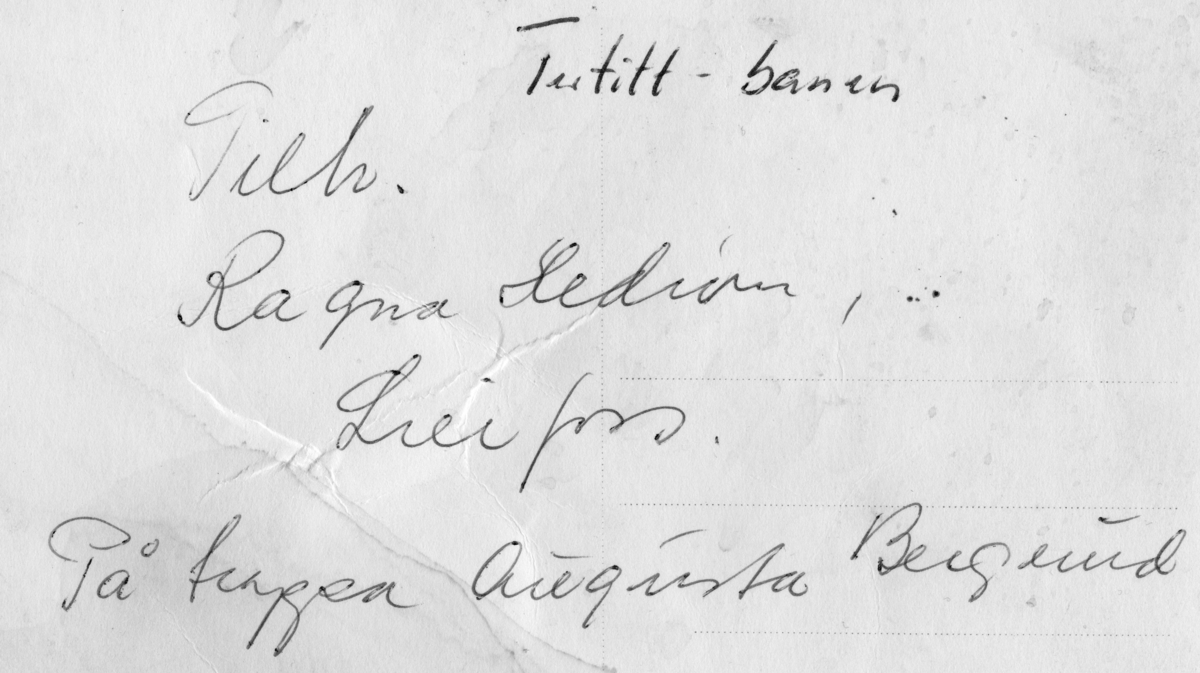 Tertitt-banen
Tilh.
Ragna Hedison,
Lierfoss.
På trappa Augusta Bergerud